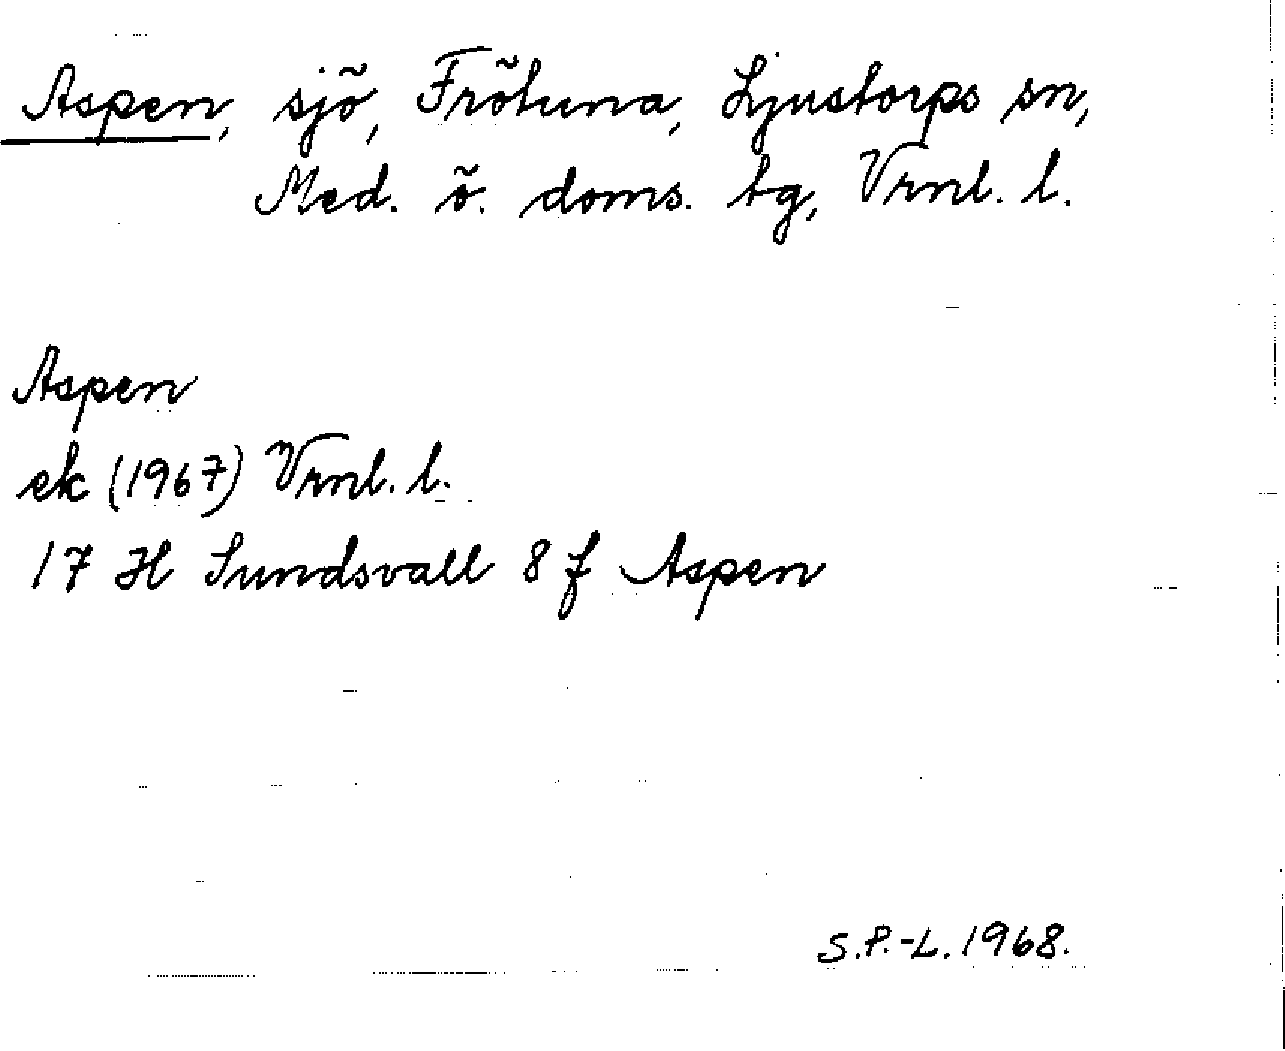 Aspen, sjö, Frötuna, Ljustorps sn,
Med. ö. doms. tg, Vrnl. l.
Aspen
ek (1967) Vrnl. l.
17 H Sundsvall 8 f Aspen
S.P.-L. 1968.